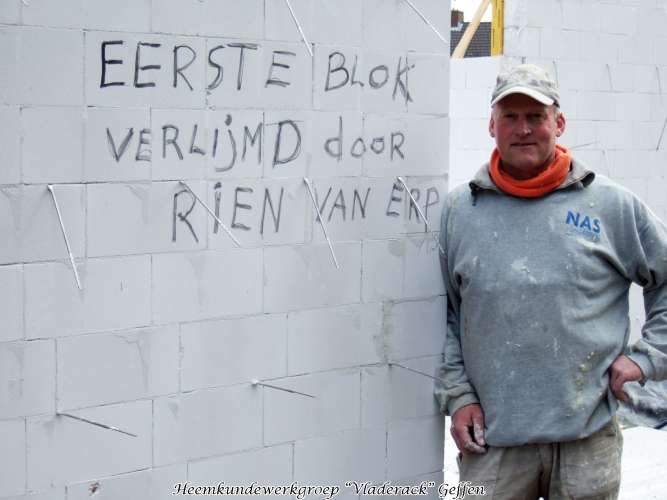 EERSTE BLOK
VERLIJMD door
RIEN VAN ERP
NAS
Heemkundewerkgroep "Vladerack" Geffen